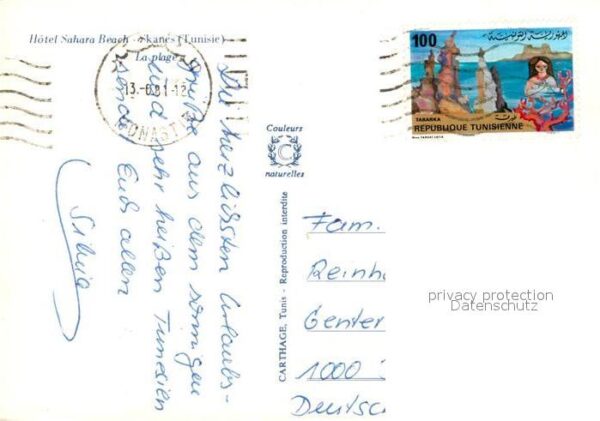 Hôtel Sahara Beach - Skanès (Tunisie)
La plage
13.-6 81-12
MONASTIR
Die herzlichsten Urlaubs-
grüße aus dem sonnigen
und sehr heißen Tunesien
sendet Euch allen
Silvia
Couleurs
C
naturelles
CARTHAGE, Tunis - Reproduction interdite
100
الجمهورية التونسية
TABARKA
طبرقة
REPUBLIQUE TUNISIENNE
Fam.
Reinh
Genter
1000
Deutsc
privacy protection
Datenschutz